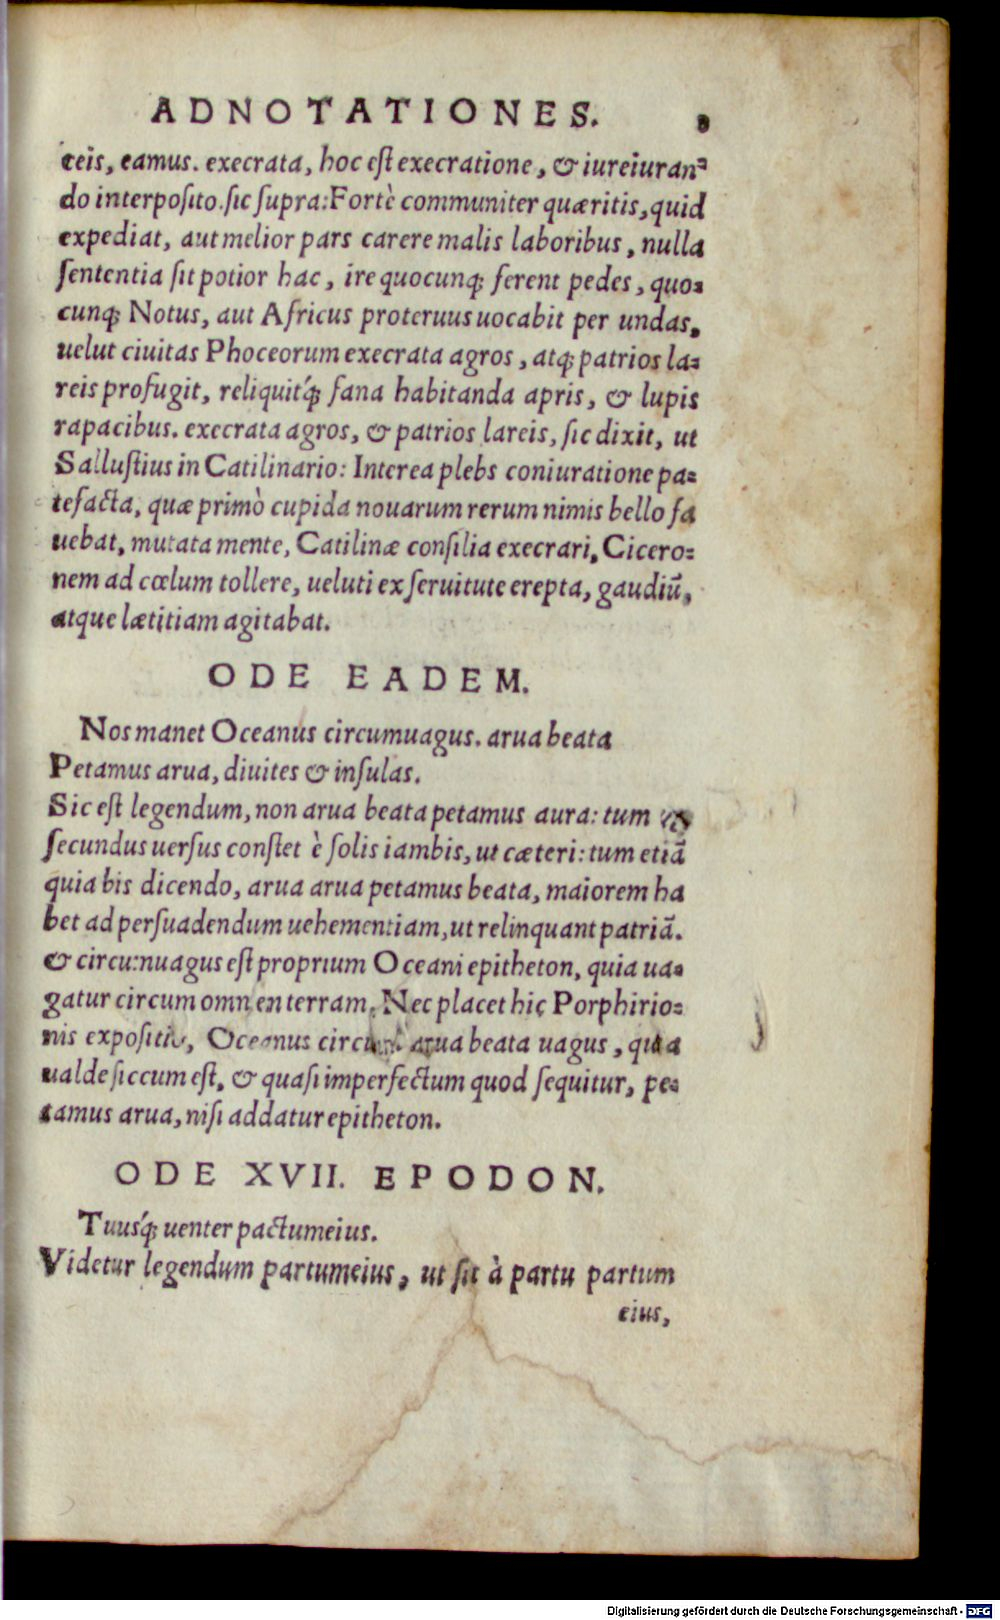 ADNOTATIONES. 8
teis, eamus. execrata, hoc est execratione, & iureiuran-
do interposito. sic supra: Fortè communiter quæritis, quid
expediat, aut melior pars carere malis laboribus, nulla
sententia sit potior hac, ire quocunq; ferent pedes, quo-
cunq; Notus, aut Africus proteruus uocabit per undas,
uelut ciuitas Phoceorum execrata agros, atq; patrios la-
reis profugit, reliquitq́; fana habitanda apris, & lupis
rapacibus. execrata agros, & patrios lareis, sic dixit, ut
Sallustius in Catilinario: Interea plebs coniuratione pa-
tefacta, quæ primò cupida nouarum rerum nimis bello fa
uebat, mutata mente, Catilinæ consilia execrari, Cicero-
nem ad cœlum tollere, ueluti ex seruitute erepta, gaudiū,
atque lætitiam agitabat.
ODE EADEM.
Nos manet Oceanus circumuagus. arua beata
Petamus arua, diuites & insulas.
Sic est legendum, non arua beata petamus aura: tum
secundus uersus constet è solis iambis, ut cæteri: tum etiā
quia bis dicendo, arua arua petamus beata, maiorem ha
bet ad persuadendum uehementiam, ut relinquant patriā.
& circumuagus est proprium Oceani epitheton, quia ua-
gatur circum omnen terram. Nec placet hic Porphirio-
nis expositio, Oceanus circum arua beata uagus, quia
ualde siccum est, & quasi imperfectum quod sequitur, pe-
tamus arua, nisi addatur epitheton.
ODE XVII. EPODON.
Tuusq́; uenter pactumeius.
Videtur legendum partumeius, ut sit à partu partum
eius,
Digitalisierung gefördert durch die Deutsche Forschungsgemeinschaft - DFG